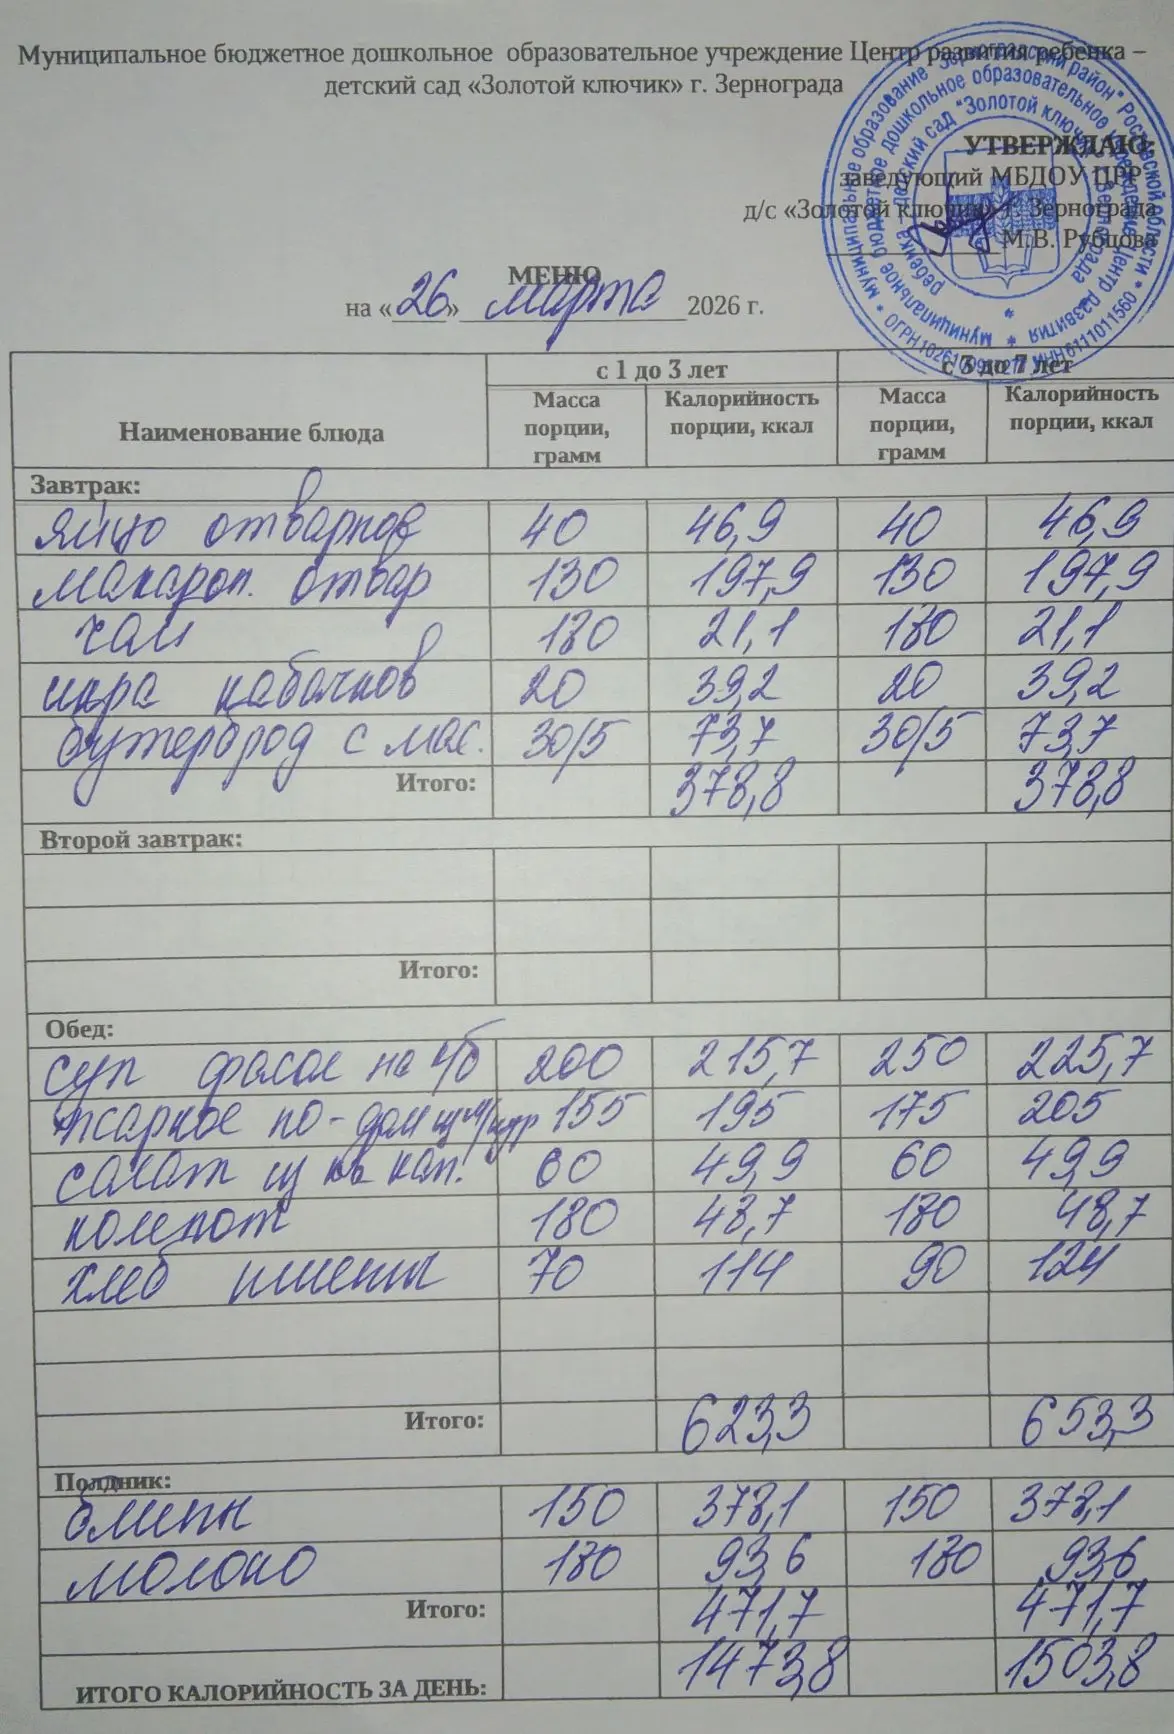 Муниципальное бюджетное дошкольное образовательное учреждение Центр развития ребенка –
детский сад «Золотой ключик» г. Зернограда
УТВЕРЖДАЮ:
заведующий МБДОУ ЦРР
д/с «Золотой ключик» г. Зернограда
М.В. Рубцова
МЕНЮ
на «26» марта 2026 г.
Наименование блюда с 1 до 3 лет с 3 до 7 лет
Масса порции, грамм Калорийность порции, ккал Масса порции, грамм Калорийность порции, ккал
Завтрак:
яйцо отварное 40 46,9 40 46,9
макарон. отвар 130 197,9 130 197,9
чай 180 21,1 180 21,1
икра кабачков 20 39,2 20 39,2
бутерброд с мас. 30/5 73,7 30/5 73,7
Итого: 378,8 378,8
Второй завтрак:
Итого:
Обед:
суп фасол на к/б 200 215,7 250 225,7
жаркое по-дом из м/кур 155 195 175 205
салат из кв кап. 60 49,9 60 49,9
компот 180 48,7 180 48,7
хлеб пшены 70 114 90 124
Итого: 623,3 653,3
Полдник:
блины 150 378,1 150 378,1
молоко 180 93,6 180 93,6
Итого: 471,7 471,7
ИТОГО КАЛОРИЙНОСТЬ ЗА ДЕНЬ: 1473,8 1503,8